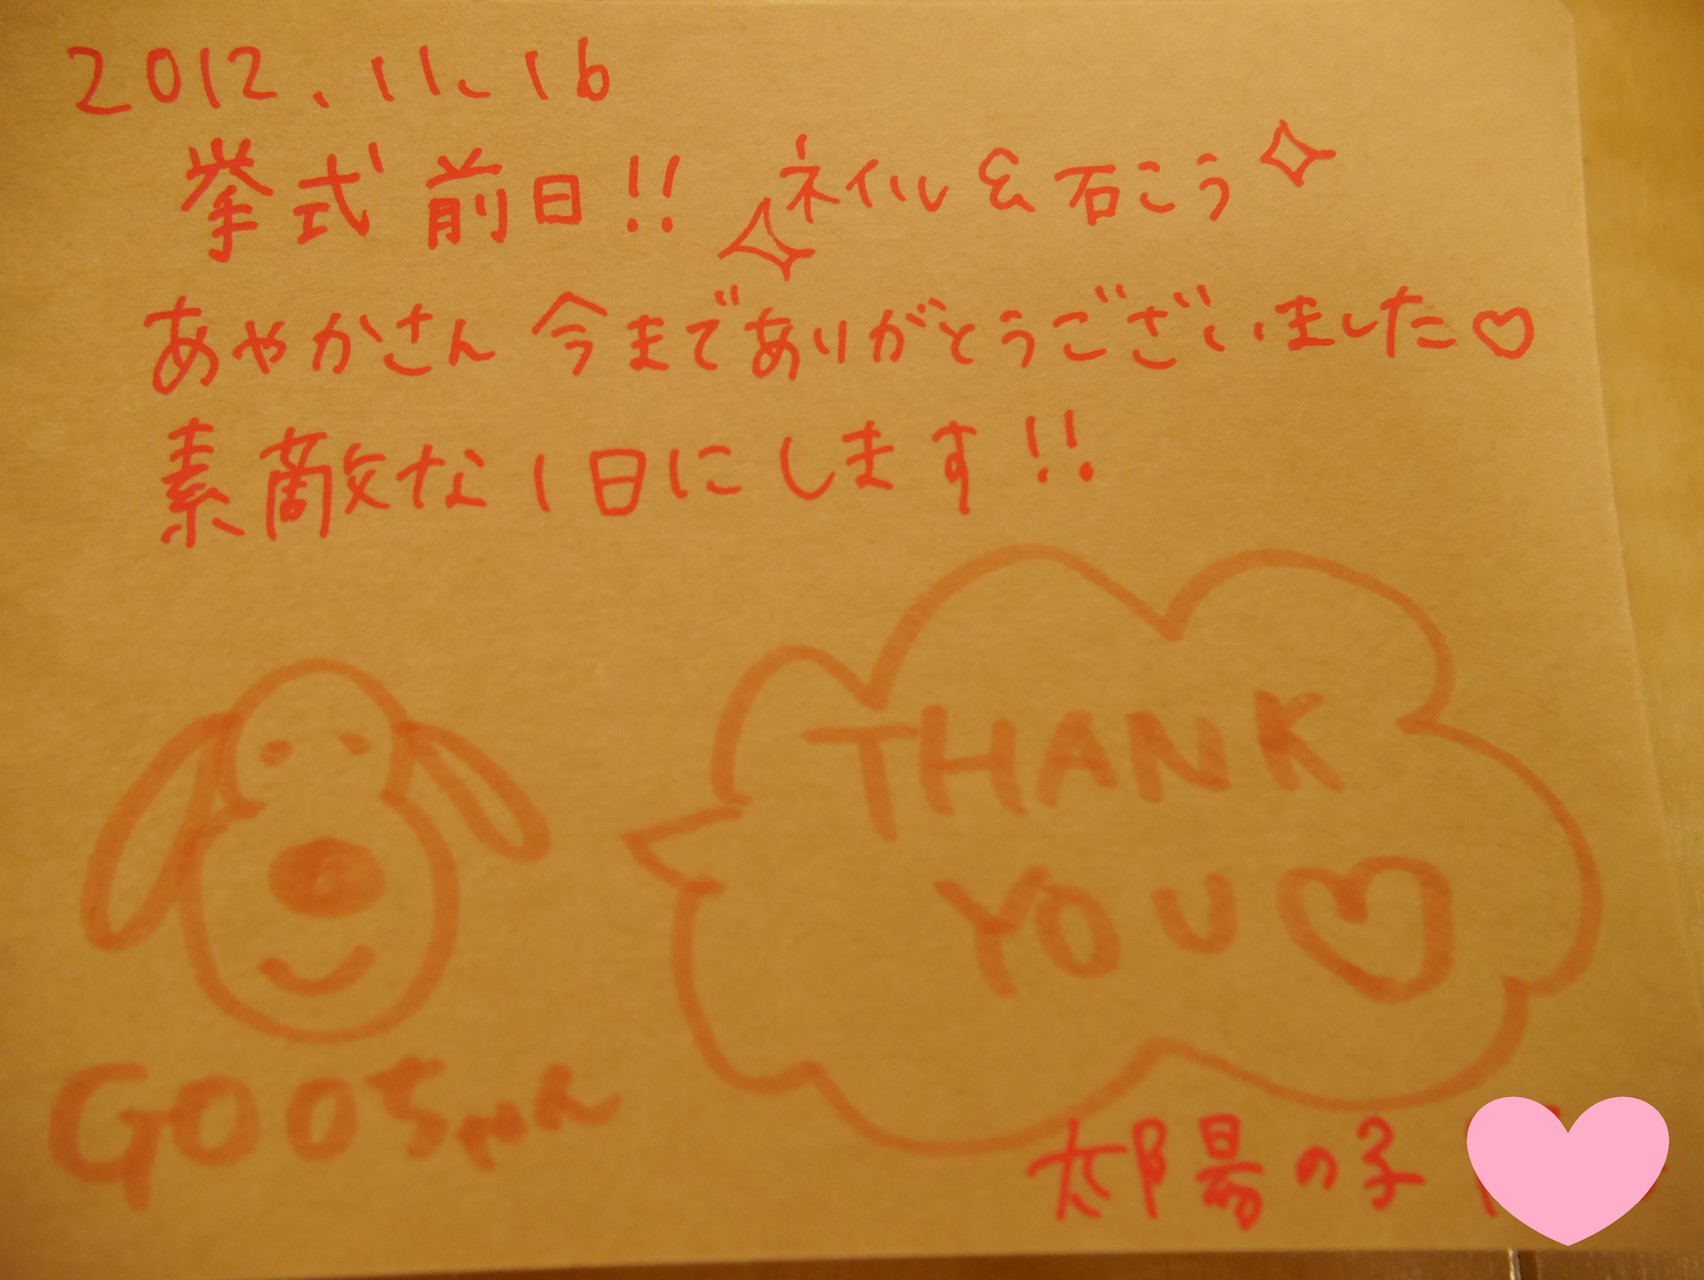 2012.11.16
挙式前日!! ネイル&石こう
あやかさん今まであり​がとうございました♡
素敵な1日にします!!
THANK
YOU♡
GOOちゃん
太陽の子